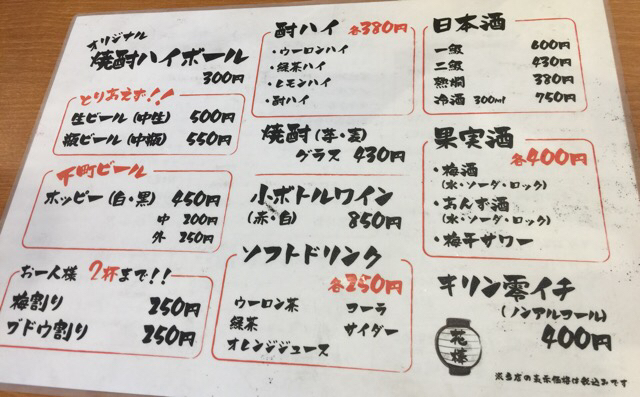 オリジナル
焼酎ハイボール
300円
とりあえず!!
生ビール (中生) 500円
瓶ビール (中瓶) 550円
下町ビール
ホッピー (白・黒) 450円
中 200円
外 250円
お一人様 2杯まで!!
梅割り 250円
ブドウ割り 250円
酎ハイ 各380円
・ウーロンハイ
・緑茶ハイ
・レモンハイ
・酎ハイ
焼酎 (芋・麦)
グラス 430円
小ボトルワイン
(赤・白) 850円
ソフトドリンク
各250円
ウーロン茶 コーラ
緑茶 サイダー
オレンジジュース
日本酒
一級 600円
二級 430円
熱燗 380円
冷酒 300ml 750円
果実酒
各400円
・梅酒
(水・ソーダ・ロック)
・あんず酒
(水・ソーダ・ロック)
・梅干サワー
キリン零イチ
(ノンアルコール)
400円
花蝶
※当店の表示価格は税込みです